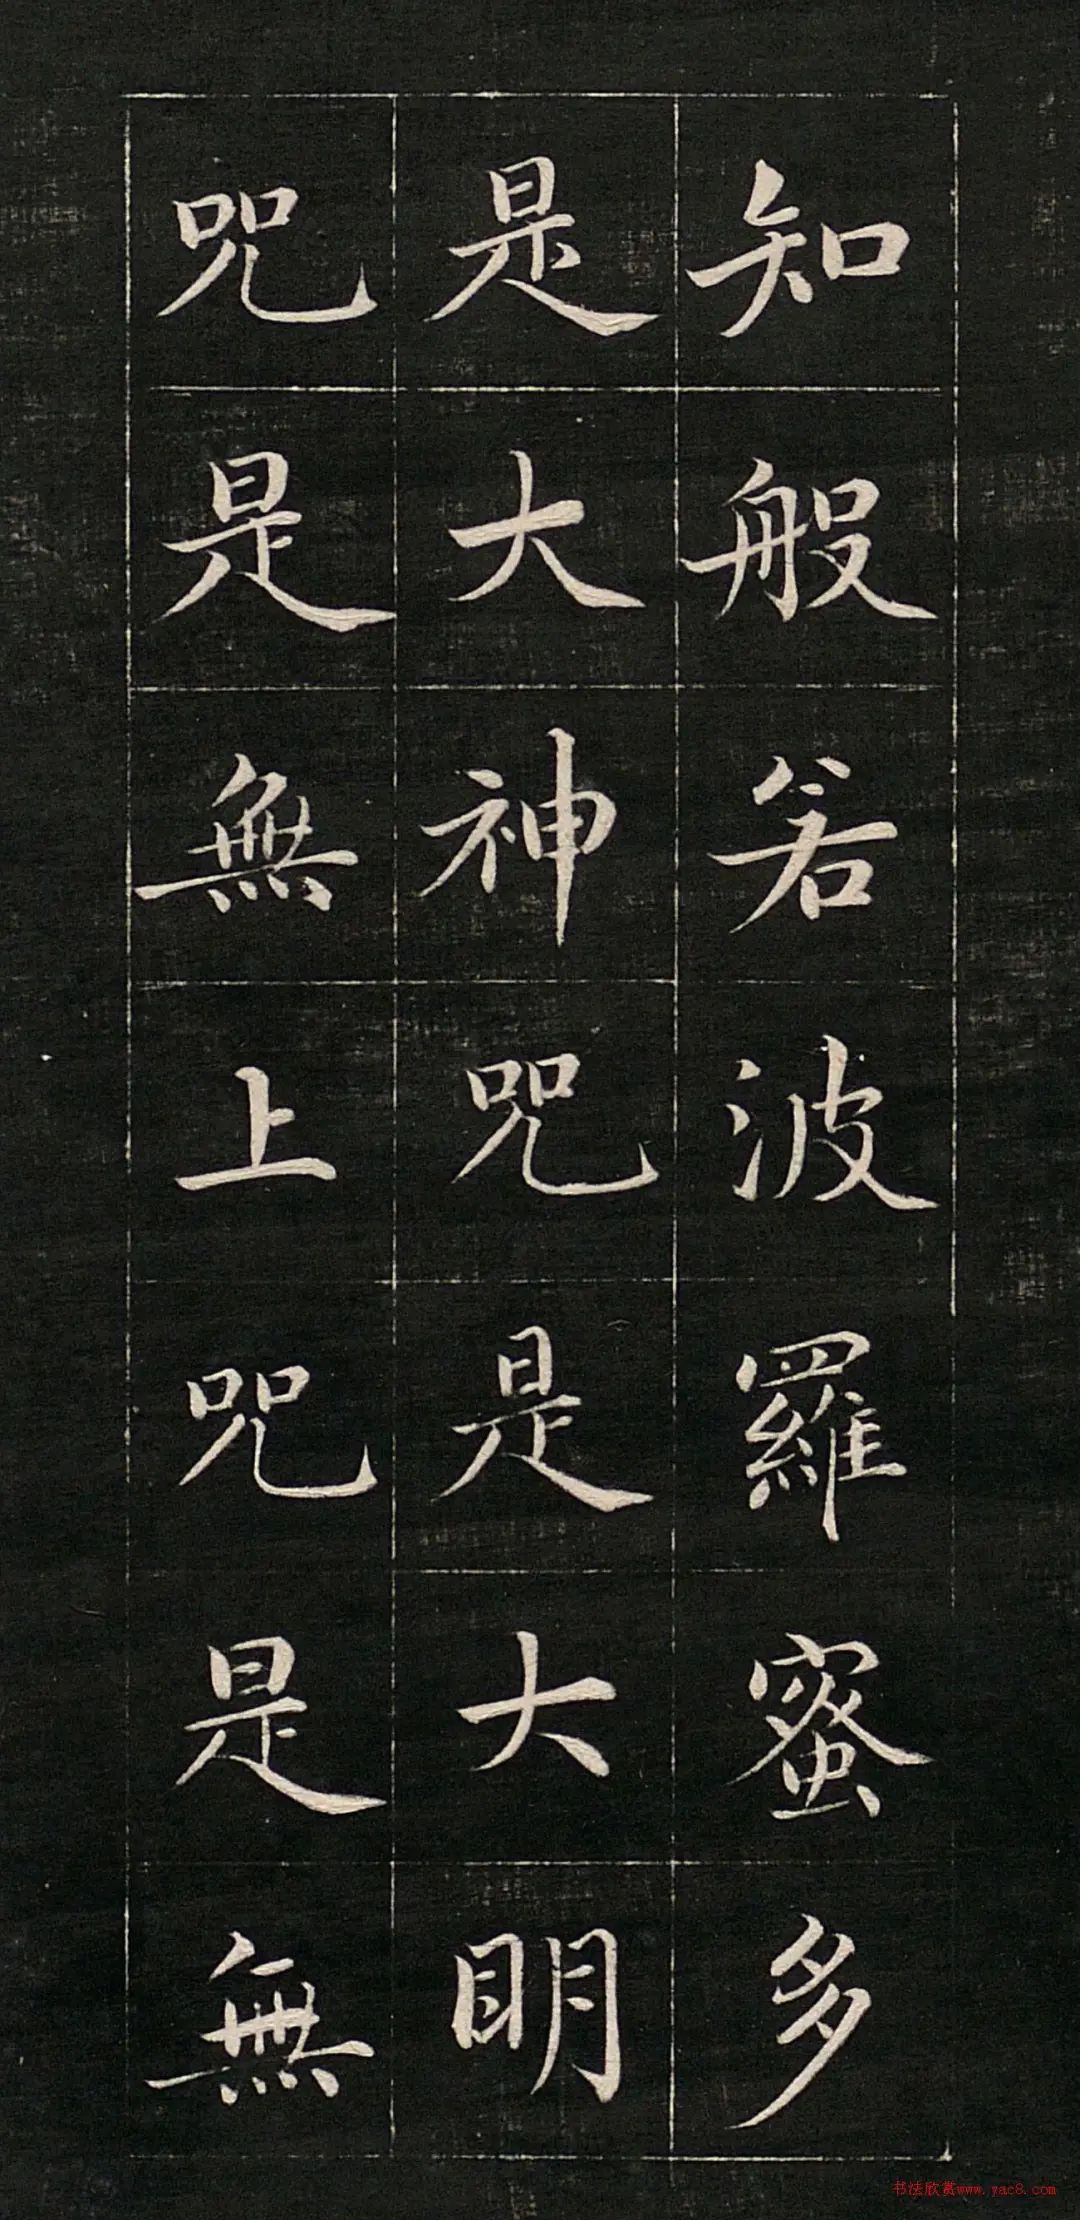 知般若波羅蜜多
是大神咒是大明
咒是無上咒是無
书法欣赏www.yac8.com